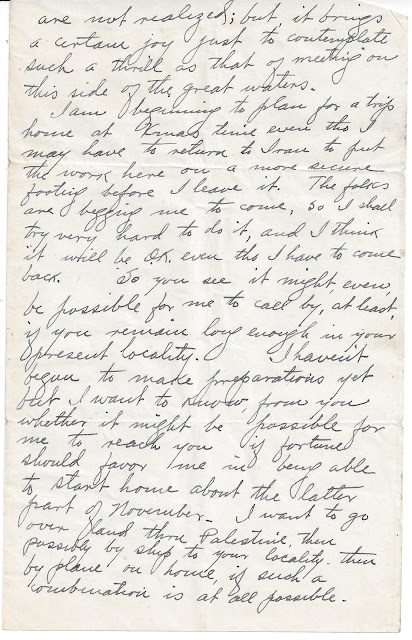 are not realized; but, it brings
a certain joy just to contemplate
such a thrill as that of meeting on
this side of the great waters.
I am beginning to plan for a trip
home at Xmas time even tho I
may have to return to Iran to put
the work here on a more secure
footing before I leave it. The folks
are begging me to come, so I shall
try very hard to do it, and I think
it will be O.K. even tho I have to come
back. So you see it might, even,
be possible for me to call by, at least,
if you remain long enough in your
present locality. I haven't
begun to make preparations yet
but I want to know, from you
whether it might be possible for
me to reach you if fortune
should favor me in being able
to start home about the latter
part of November. I want to go
over land thru Palestine, then
possibly by ship to your locality. then
by plane on home, if such a
combination is at all possible.